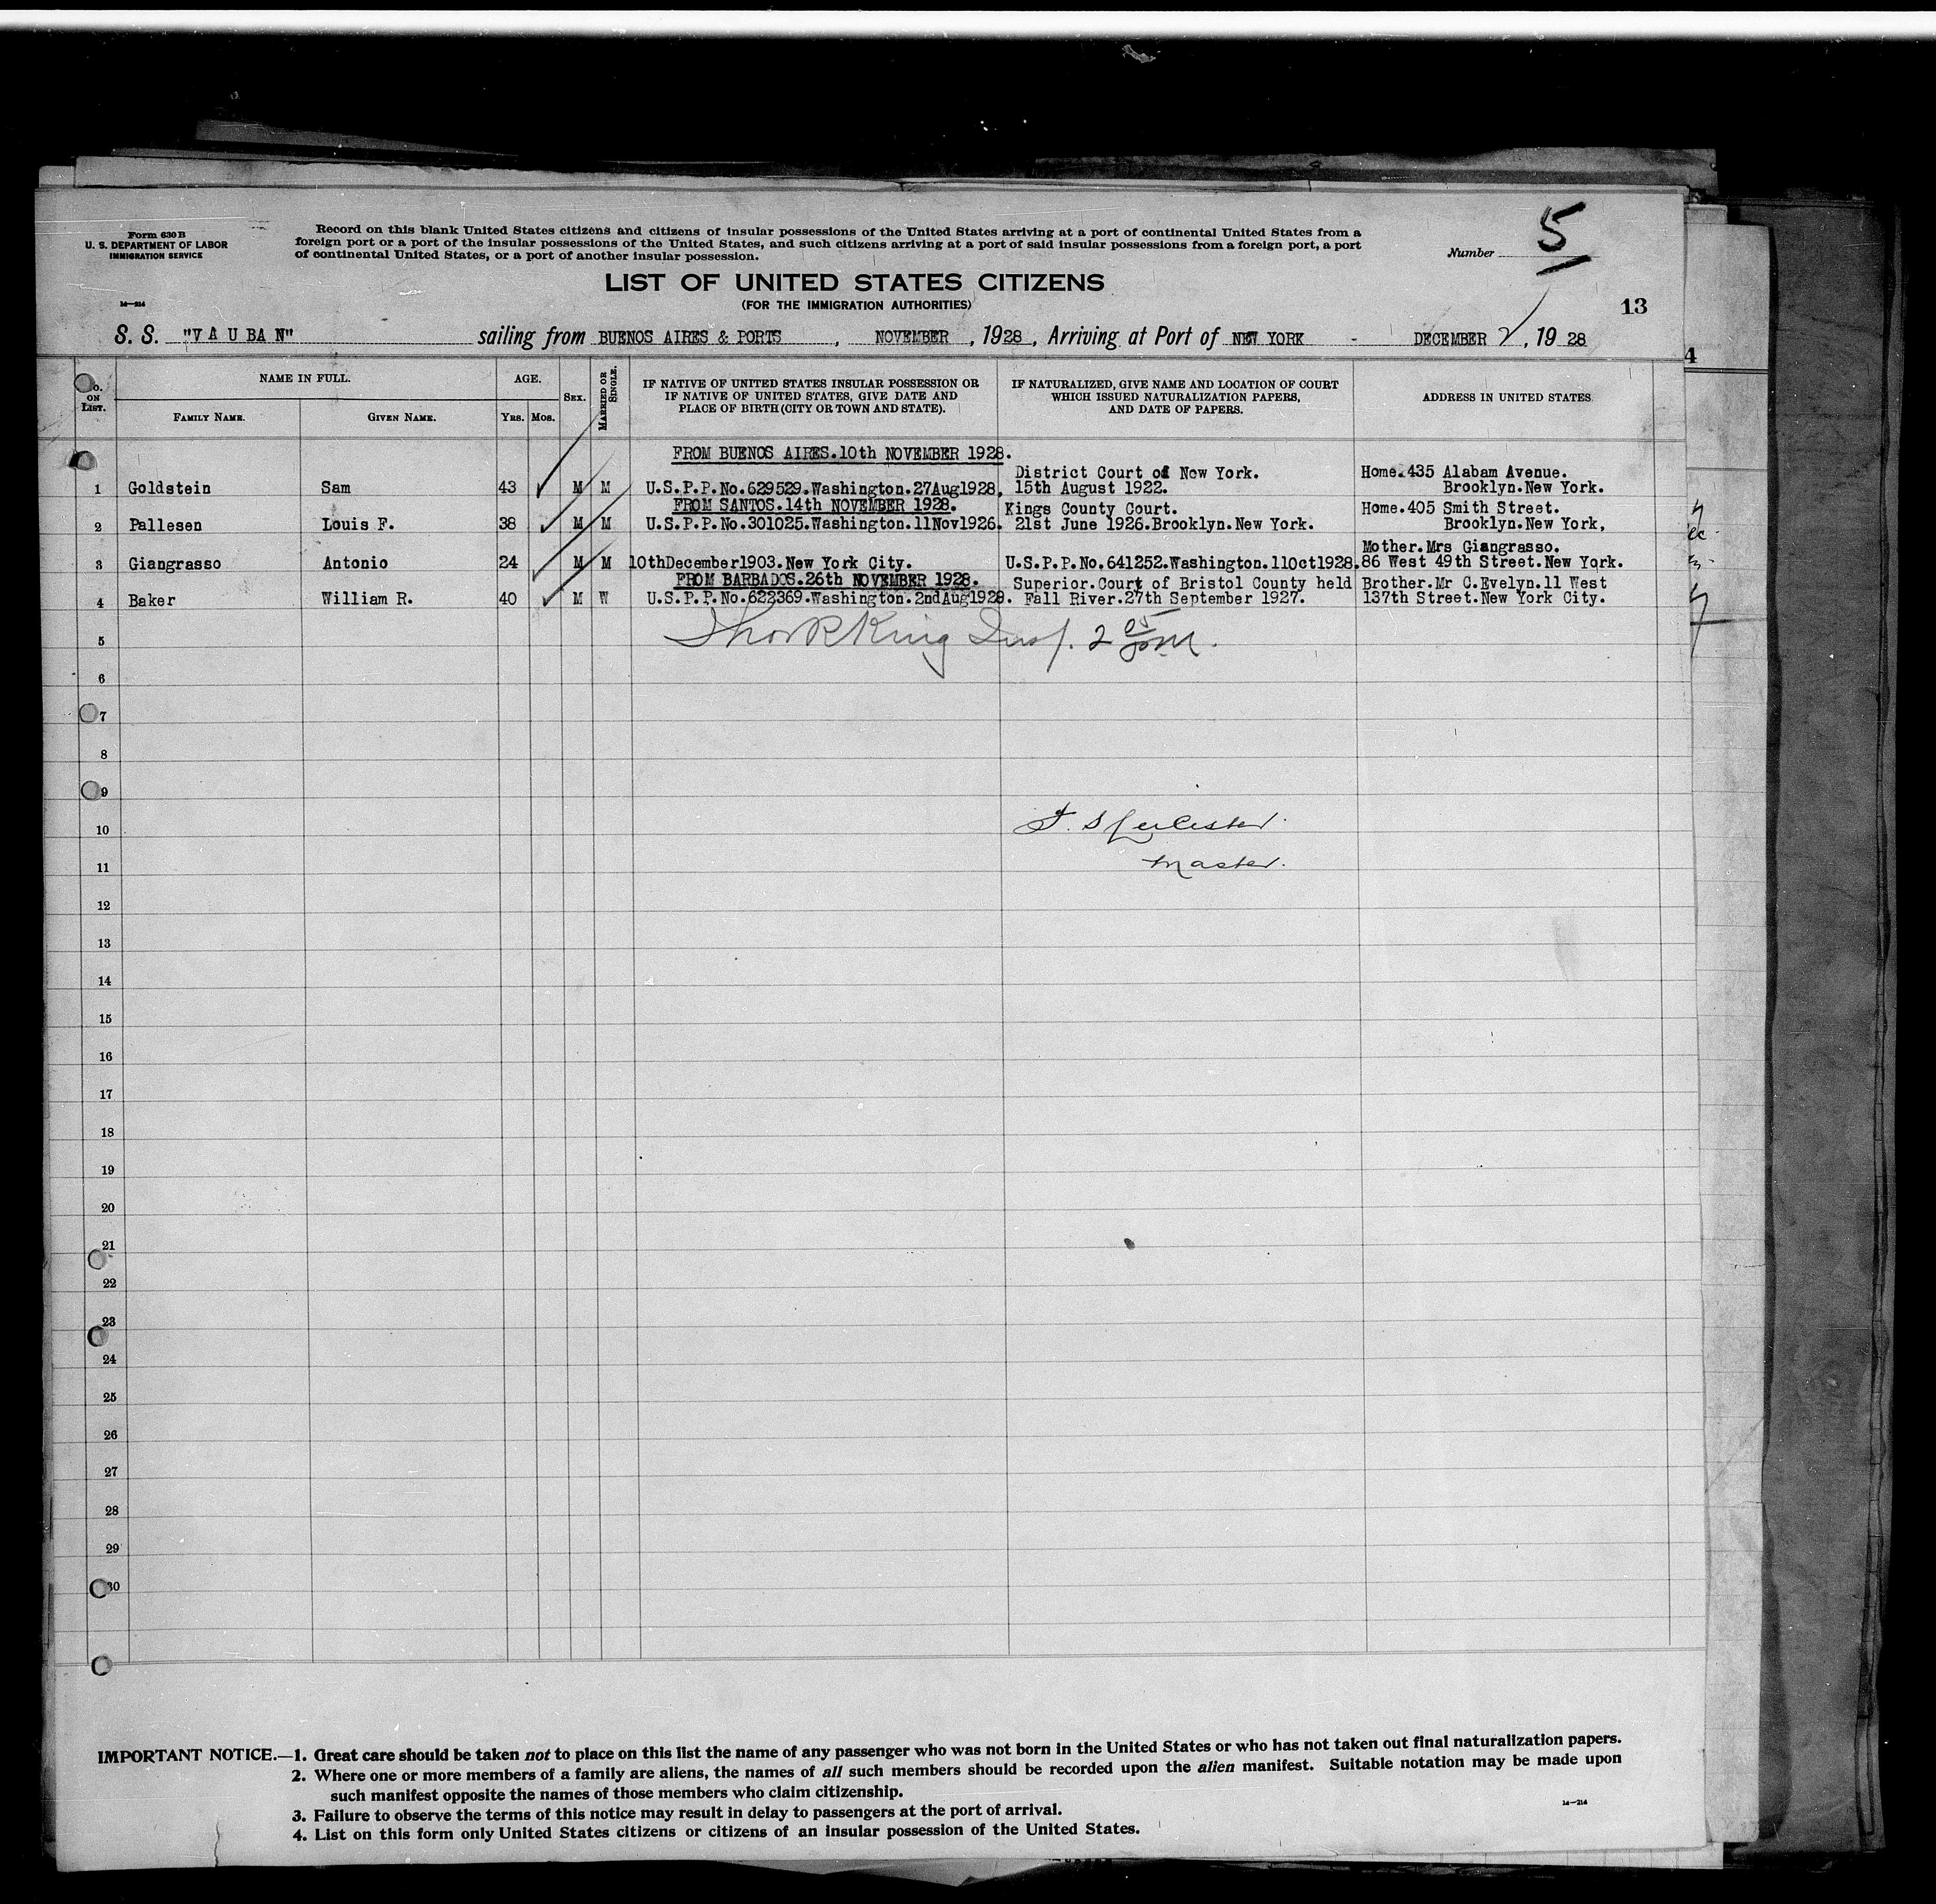 Form 630 B
U. S. DEPARTMENT OF LABOR
IMMIGRATION SERVICE
Record on this blank United States citizens and citizens of insular possessions of the United States arriving at a port of continental United States from a
foreign port or a port of the insular possessions of the United States, and such citizens arriving at a port of said insular possessions from a foreign port, a port
of continental United States, or a port of another insular possession.
Number 5
LIST OF UNITED STATES CITIZENS
(FOR THE IMMIGRATION AUTHORITIES)
14—214
13
S. S. "VAUBAN" sailing from BUENOS AIRES & PORTS, NOVEMBER, 1928, Arriving at Port of NEW YORK - DECEMBER 2, 1928
4
No. ON LIST.
NAME IN FULL.
FAMILY NAME.
GIVEN NAME.
AGE.
YRS. MOS.
SEX.
MARRIED OR SINGLE.
IF NATIVE OF UNITED STATES INSULAR POSSESSION OR
IF NATIVE OF UNITED STATES, GIVE DATE AND
PLACE OF BIRTH (CITY OR TOWN AND STATE).
IF NATURALIZED, GIVE NAME AND LOCATION OF COURT
WHICH ISSUED NATURALIZATION PAPERS,
AND DATE OF PAPERS.
ADDRESS IN UNITED STATES
FROM BUENOS AIRES.10th NOVEMBER 1928.
District Court of New York. Home.435 Alabam Avenue.
1 Goldstein Sam 43 M M U.S.P.P.No.629529.Washington.27Aug1928, 15th August 1922. Brooklyn.New York.
FROM SANTOS.14th NOVEMBER 1928. Kings County Court. Home.405 Smith Street.
2 Pallesen Louis F. 38 M M U.S.P.P.No.301025.Washington.11Nov1926. 21st June 1926.Brooklyn.New York. Brooklyn.New York,
Mother.Mrs Giangrasso.
3 Giangrasso Antonio 24 M M 10thDecember1903.New York City. U.S.P.P.No.641252.Washington.11Oct1928. 86 West 49th Street.New York.
FROM BARBADOS.26th NOVEMBER 1928. Superior.Court of Bristol County held Brother.Mr C.Evelyn.11 West
4 Baker William R. 40 M W U.S.P.P.No.622369.Washington.2ndAug1928. Fall River.27th September 1927. 137th Street.New York City.
5 King Insp. 2 05 pm.
6
7
8
9
10
11 Master.
12
13
14
15
16
17
18
19
20
21
22
23
24
25
26
27
28
29
30
IMPORTANT NOTICE.—1. Great care should be taken not to place on this list the name of any passenger who was not born in the United States or who has not taken out final naturalization papers.
2. Where one or more members of a family are aliens, the names of all such members should be recorded upon the alien manifest. Suitable notation may be made upon
such manifest opposite the names of those members who claim citizenship.
3. Failure to observe the terms of this notice may result in delay to passengers at the port of arrival.
14—214
4. List on this form only United States citizens or citizens of an insular possession of the United States.